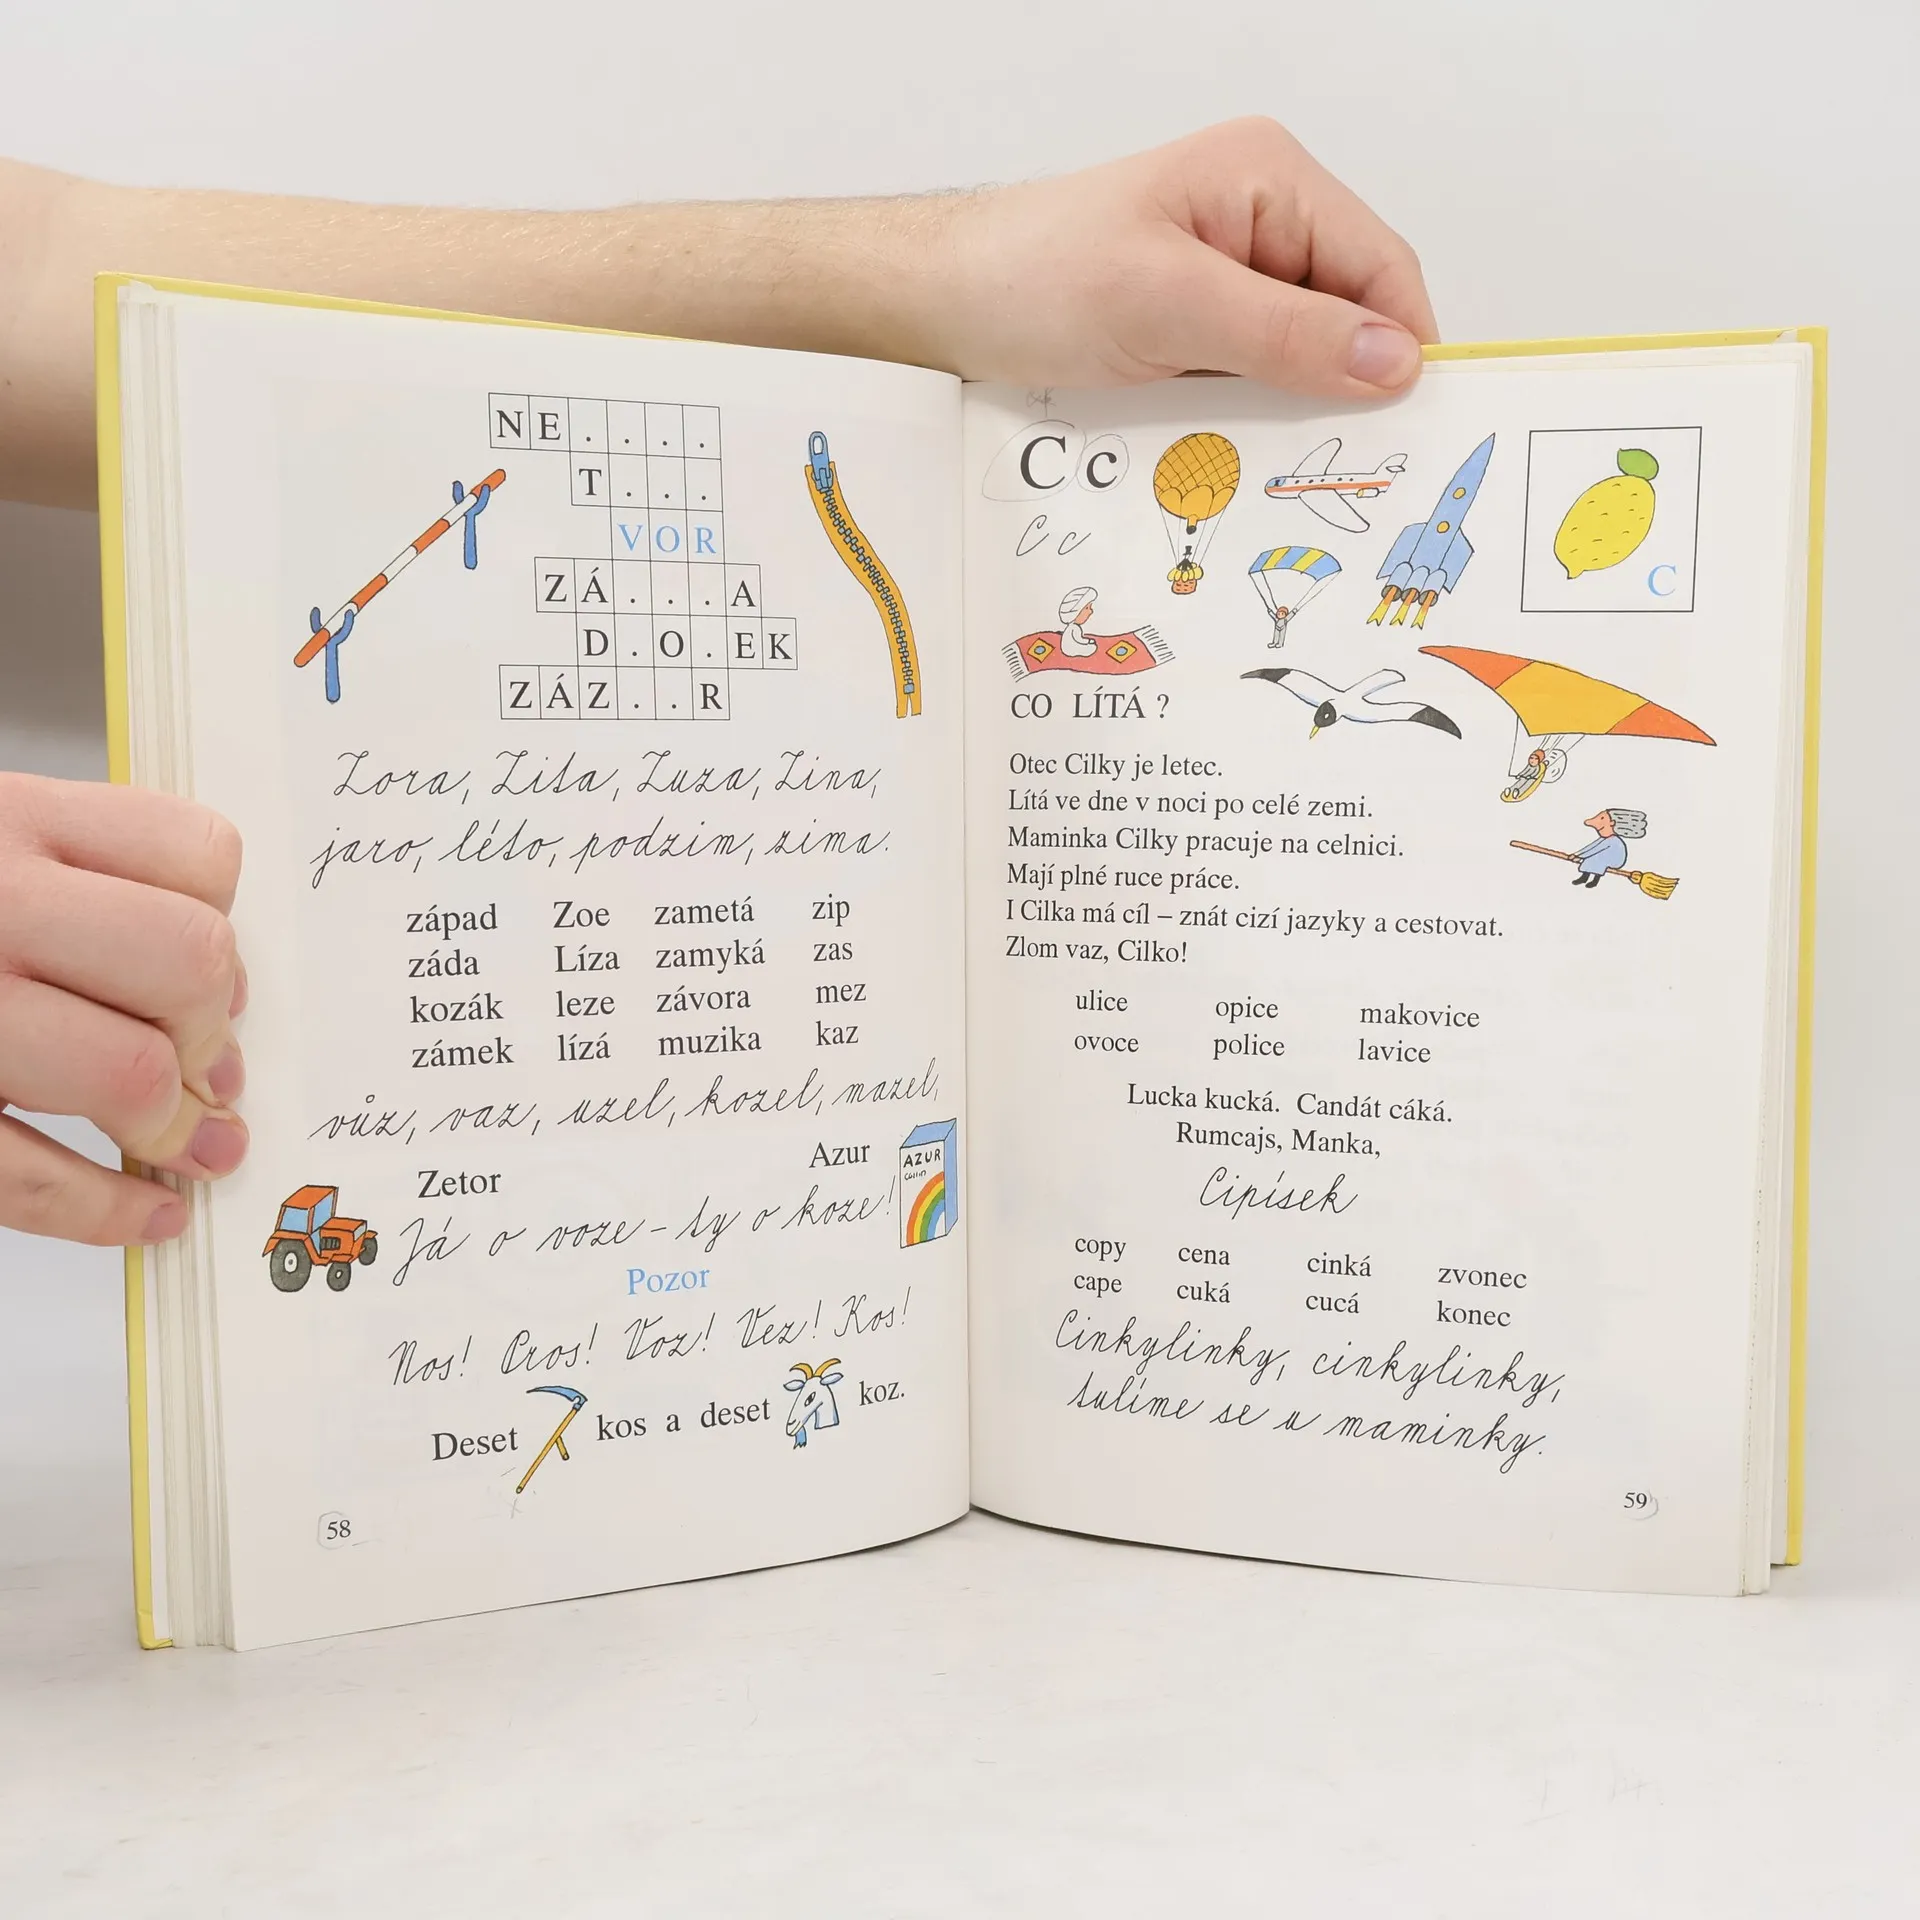 NE....
T...
VOR
ZÁ...A
D.O.EK
ZÁZ..R
Zora, Zita, Zuza, Zina,
jaro, léto, podzim, zima.
západ Zoe zametá zip
záda Líza zamyká zas
kozák leze závora mez
zámek lízá muzika kaz
vůz, vaz, uzel, kozel, mazel,
Zetor Azur
AZUR
Já o voze – ty o koze!
Pozor
Nos! Pros! Voz! Vez! Kos!
Deset kos a deset koz.
58
C c
C c
C
CO LÍTÁ ?
Otec Cilky je letec.
Lítá ve dne v noci po celé zemi.
Maminka Cilky pracuje na celnici.
Mají plné ruce práce.
I Cilka má cíl – znát cizí jazyky a cestovat.
Zlom vaz, Cilko!
ulice opice makovice
ovoce police lavice
Lucka kucká. Candát cáká.
Rumcajs, Manka,
Cipísek
copy cena cinká zvonec
cape cuká cucá konec
Cinkylinky, cinkylinky,
tulíme se u maminky.
59